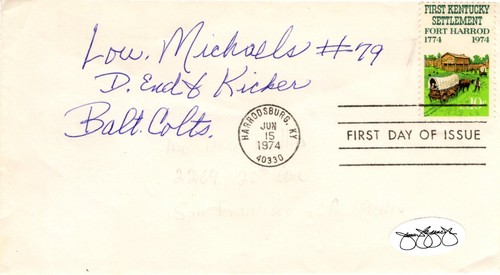 FIRST KENTUCKY
SETTLEMENT
FORT HARROD
1774 1974
10c
Lou. Michaels #79
D. End & Kicker
Balt. Colts.
HARRODSBURG, KY
JUN
15
1974
40330
FIRST DAY OF ISSUE